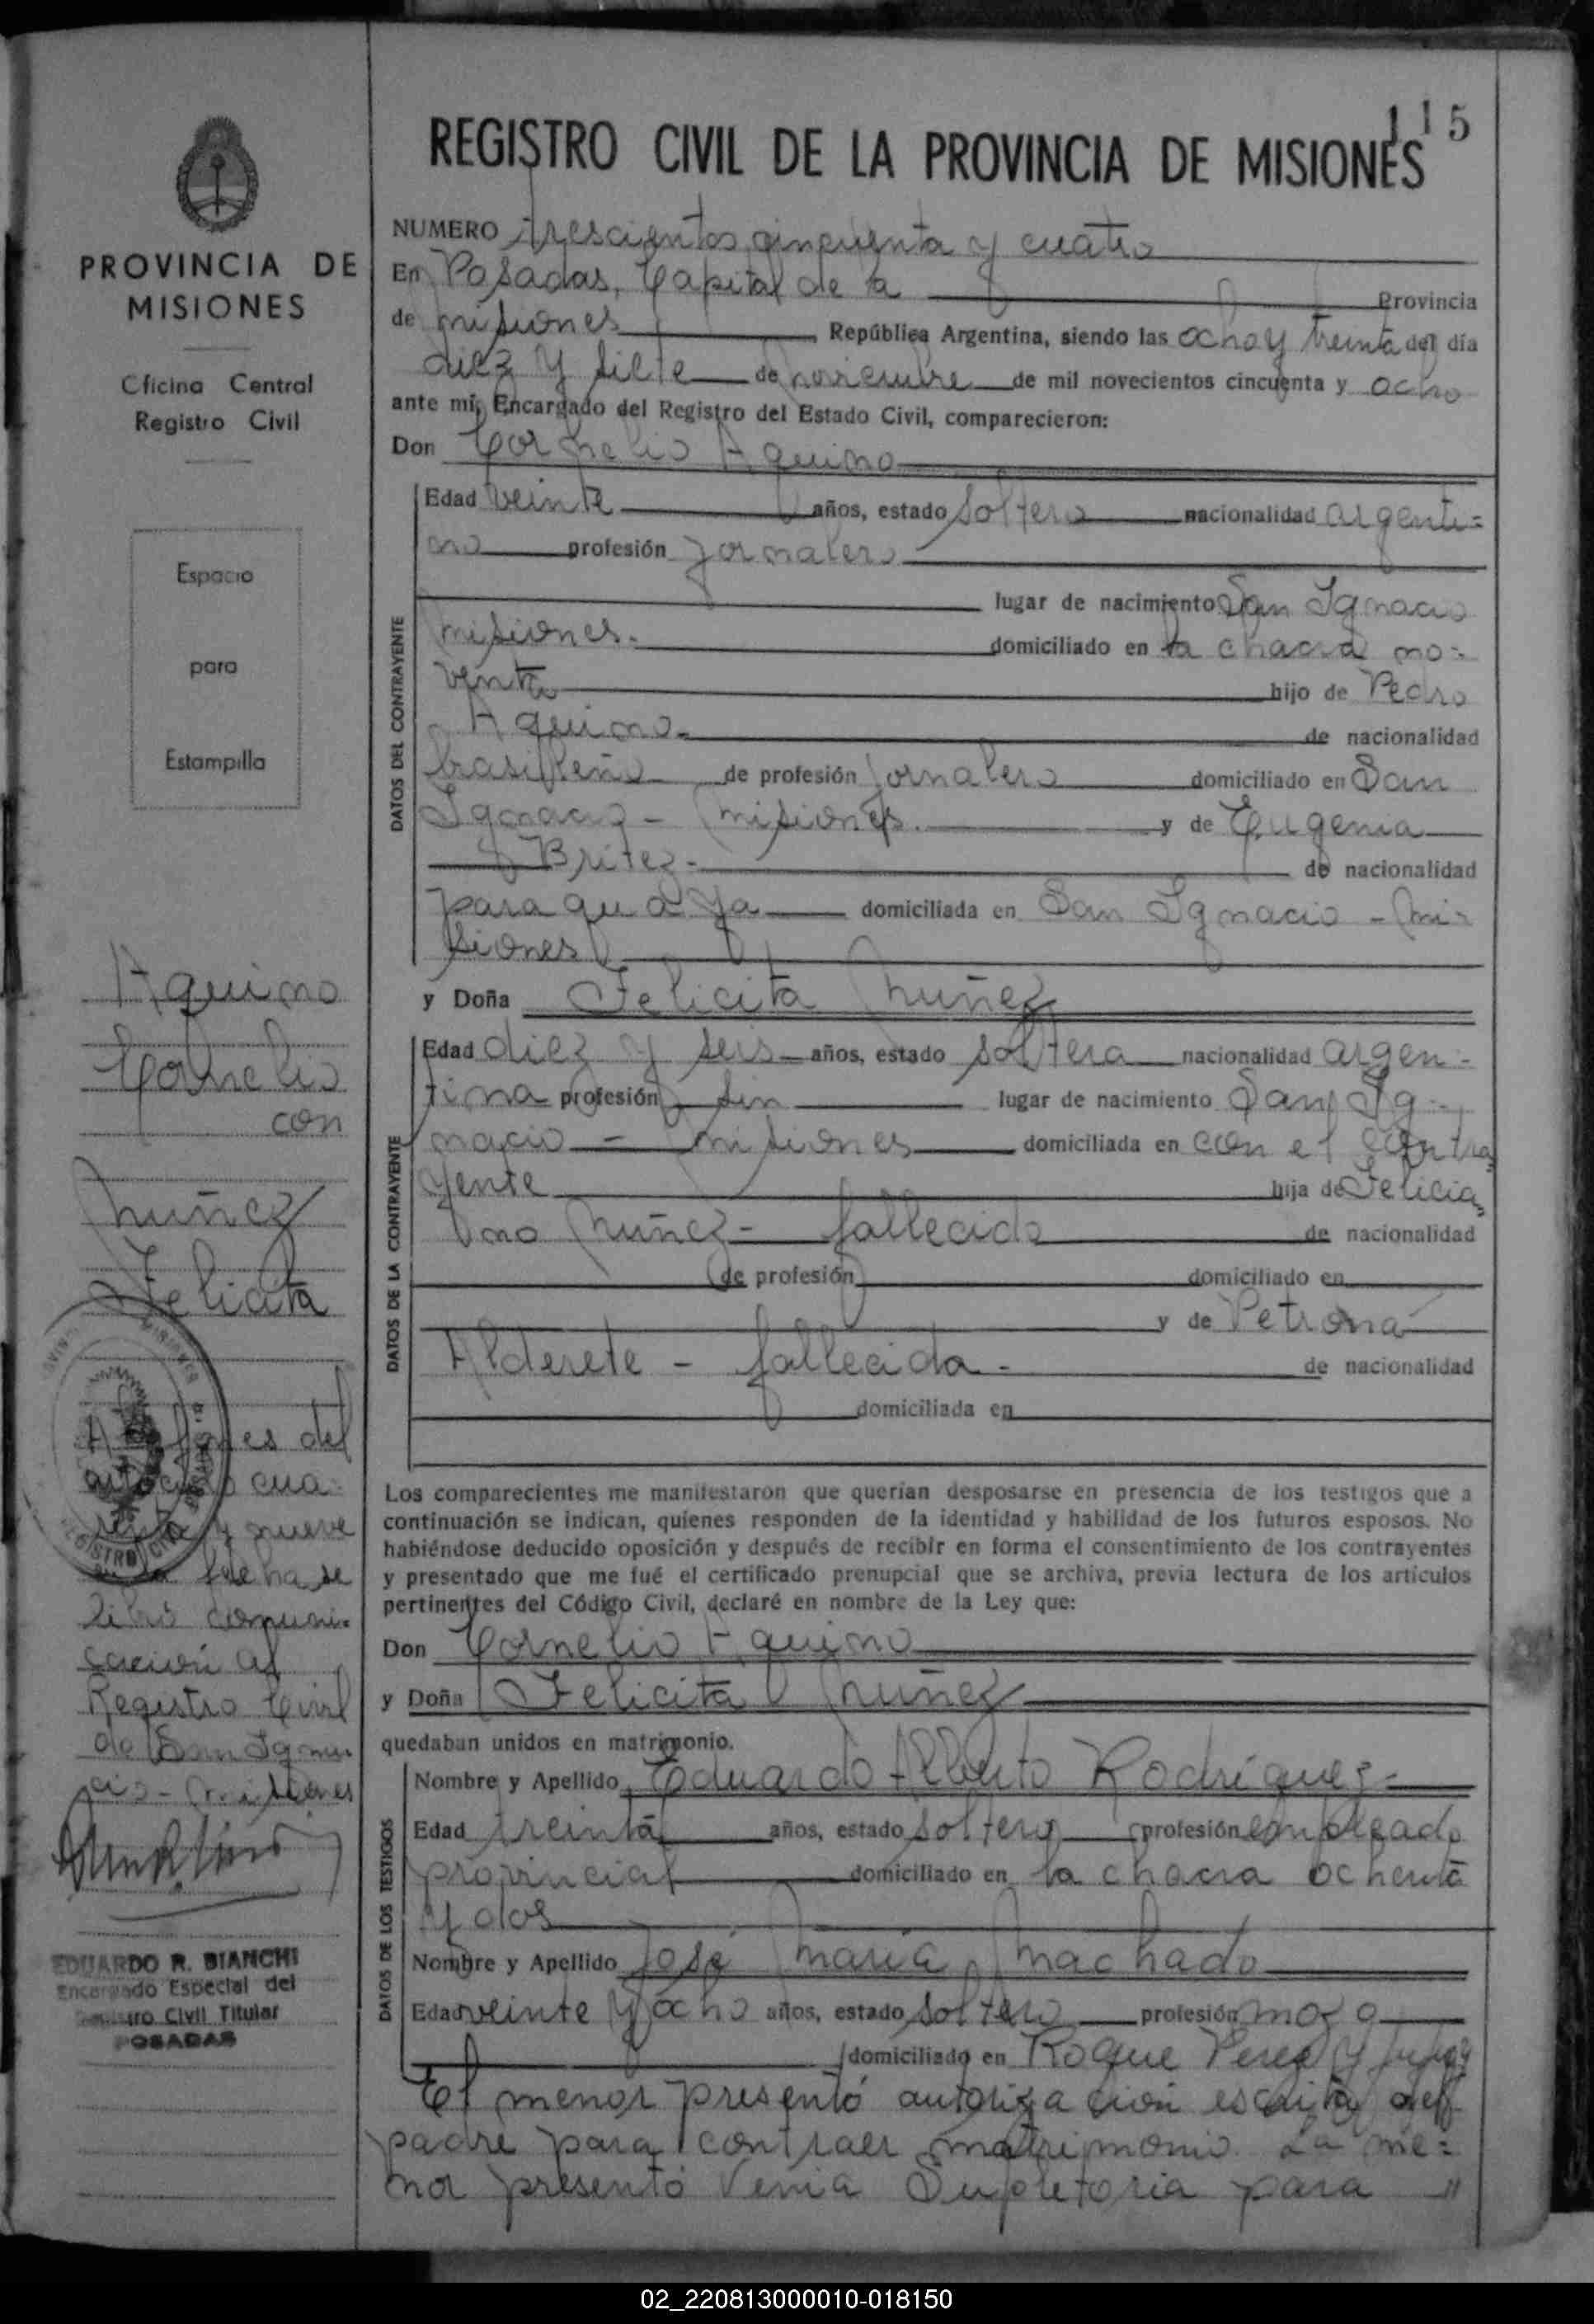 115
REGISTRO CIVIL DE LA PROVINCIA DE MISIONES
PROVINCIA DE
MISIONES
Oficina Central
Registro Civil
Espacio
para
Estampilla
Aquino
Cornelio
con
Nuñez
Felicita
A fines del
artículo cua-
renta y nueve
en la fecha se
libró comuni-
cación al
Registro Civil
de San Igna-
cio - Misiones
EDUARDO R. BIANCHI
Encargado Especial del
Registro Civil Titular
POSADAS
NUMERO trescientos cincuenta y cuatro
En Posadas, Capital de la Provincia
de Misiones República Argentina, siendo las ocho y treinta del día
diez y siete de noviembre de mil novecientos cincuenta y ocho
ante mí, Encargado del Registro del Estado Civil, comparecieron:
Don Cornelio Aquino
DATOS DEL CONTRAYENTE
Edad veinte años, estado soltero nacionalidad argenti=
no profesión jornalero
lugar de nacimiento San Ignacio
Misiones. domiciliado en la chacra no=
venta hijo de Pedro
Aquino. de nacionalidad
brasileño de profesión jornalero domiciliado en San
Ignacio - Misiones. y de Eugenia
Britez. de nacionalidad
paraguaya domiciliada en San Ignacio - Mi-
siones
y Doña Felicita Nuñez
DATOS DE LA CONTRAYENTE
Edad diez y seis años, estado soltera nacionalidad argen-
tina profesión sin lugar de nacimiento San Ig-
nacio - Misiones domiciliada en con el contra
yente hija de Felicia
no Nuñez - fallecido de nacionalidad
de profesión domiciliado en
y de Petrona
Alderete - fallecida - de nacionalidad
domiciliada en
Los comparecientes me manifestaron que querían desposarse en presencia de los testigos que a
continuación se indican, quienes responden de la identidad y habilidad de los futuros esposos. No
habiéndose deducido oposición y después de recibir en forma el consentimiento de los contrayentes
y presentado que me fué el certificado prenupcial que se archiva, previa lectura de los artículos
pertinentes del Código Civil, declaré en nombre de la Ley que:
Don Cornelio Aquino
y Doña Felicita Nuñez
quedaban unidos en matrimonio.
DATOS DE LOS TESTIGOS
Nombre y Apellido Eduardo Alberto Rodríguez-
Edad treinta años, estado soltero profesión empleado
provincial domiciliado en la chacra ochenta
y dos
Nombre y Apellido José María Machado
Edad veinte y ocho años, estado soltero profesión mozo
domiciliado en Roque Perez y Jujuy
El menor presentó autorización escrita del
padre para contraer matrimonio. La me=
nor presentó Venia Supletoria para "
02_220813000010-018150